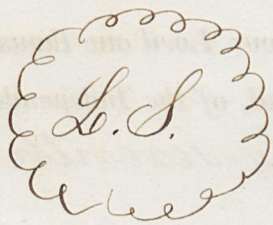 L. S.